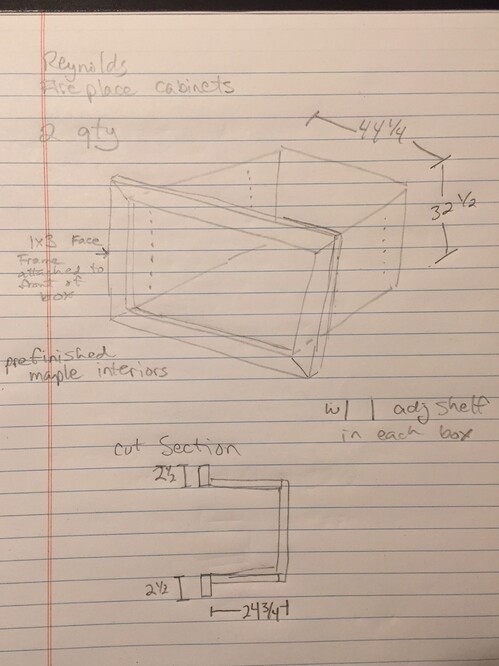 Reynolds
Fire place cabinets
2 qty
44 1/4
32 1/2
1x3 Face
Frame
attached to
front of
box
prefinished
maple interiors
w/ 1 adj shelf
in each box
cut Section
2 1/2
2 1/2
24 3/4